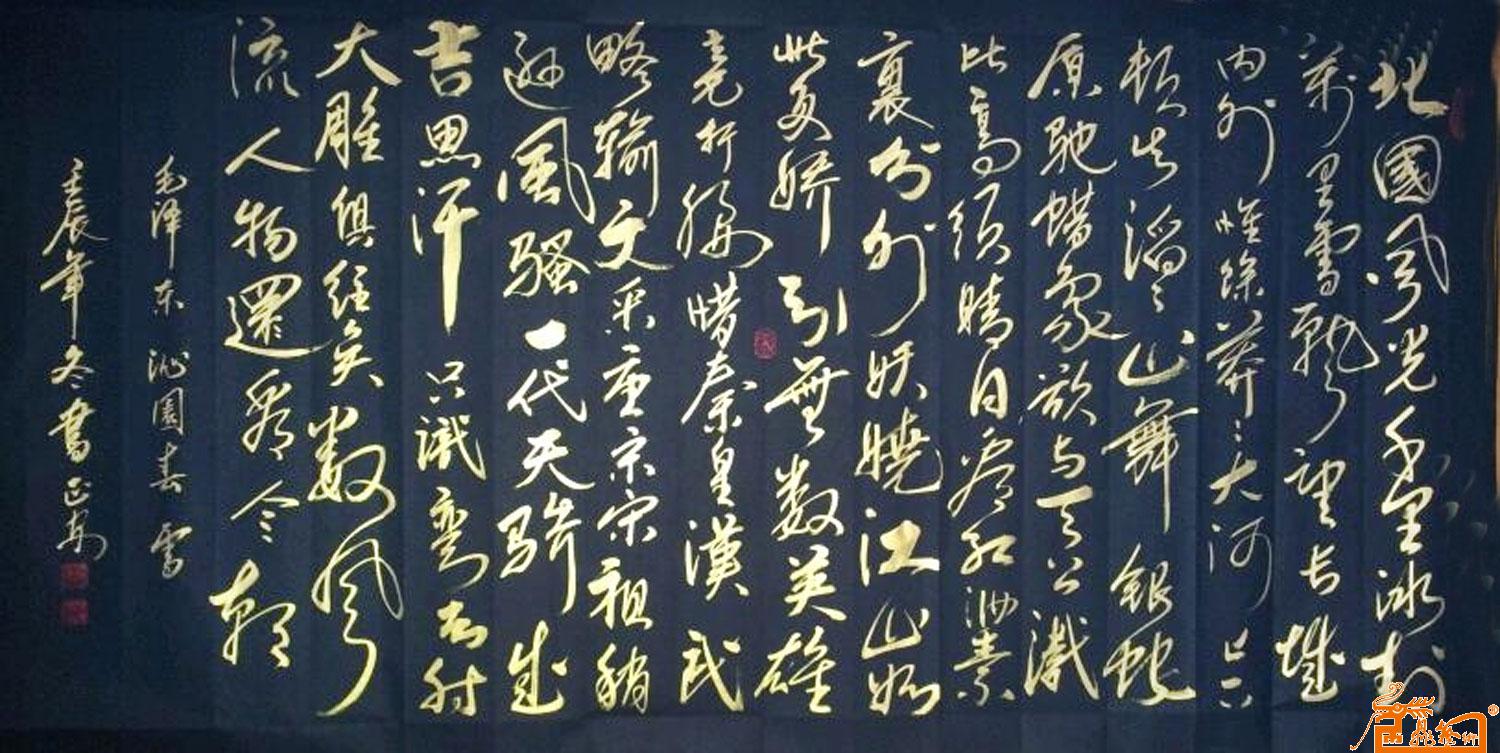 北國風光千里冰封
萬里雪飄望长城
内外惟餘莽々大河上下
頓失滔々山舞銀蛇
原馳蜡象欲与天公試
比高須晴日看紅妝素
裹分外妖嬈江山如
此多嬌引無數英雄
竞折腰惜秦皇漢武
略輸文采唐宗宋祖稍
遜風騷一代天驕成
吉思汗只識彎弓射
大雕俱往矣數風
流人物還看今朝
毛泽东 沁園春 雪
壬辰年冬書正